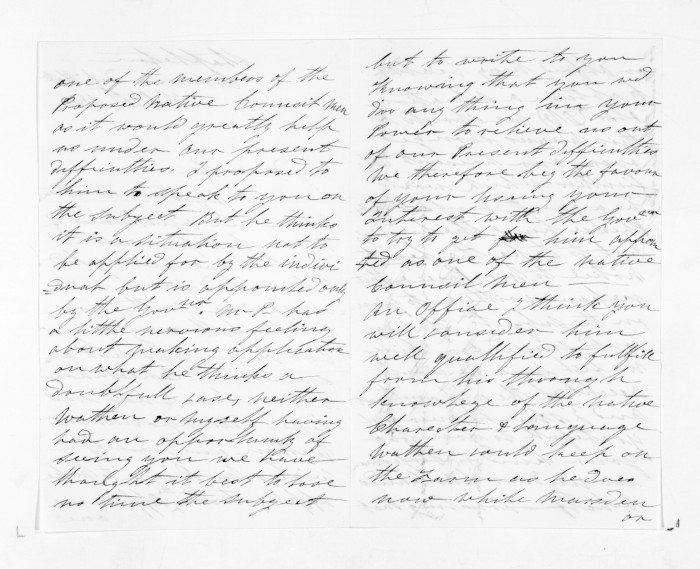 one of the members of the
Proposed Native Council Men
as it would greatly help
us under our present
difficulties. I proposed to
him to speak to you on
the subject But he thinks
it is a situation not to
be applied for by the indivi
dual but is appointed only
by the Govnor. Mr P. has
a little nervous feeling
about making application
on what he thinks a
doubtfull case, neither
Wathen or myself having
had an opportunity of
seeing you we have
thought it best to lose
no time the subject
but to write to you
Knowing that you wd
do any thing in your
Power to relieve us out
of our Present difficulties
We therefore beg the favour
of your using your
Interest with the Govenor
to try to get him appoin
ted as one of the native
Council Men —
An Office I think you
will consider him
well quallified to fullfill
from his through
knowlege of the native
Charecter & Language
Wathen could keep on
the Farm as he does
now while Marsden
or